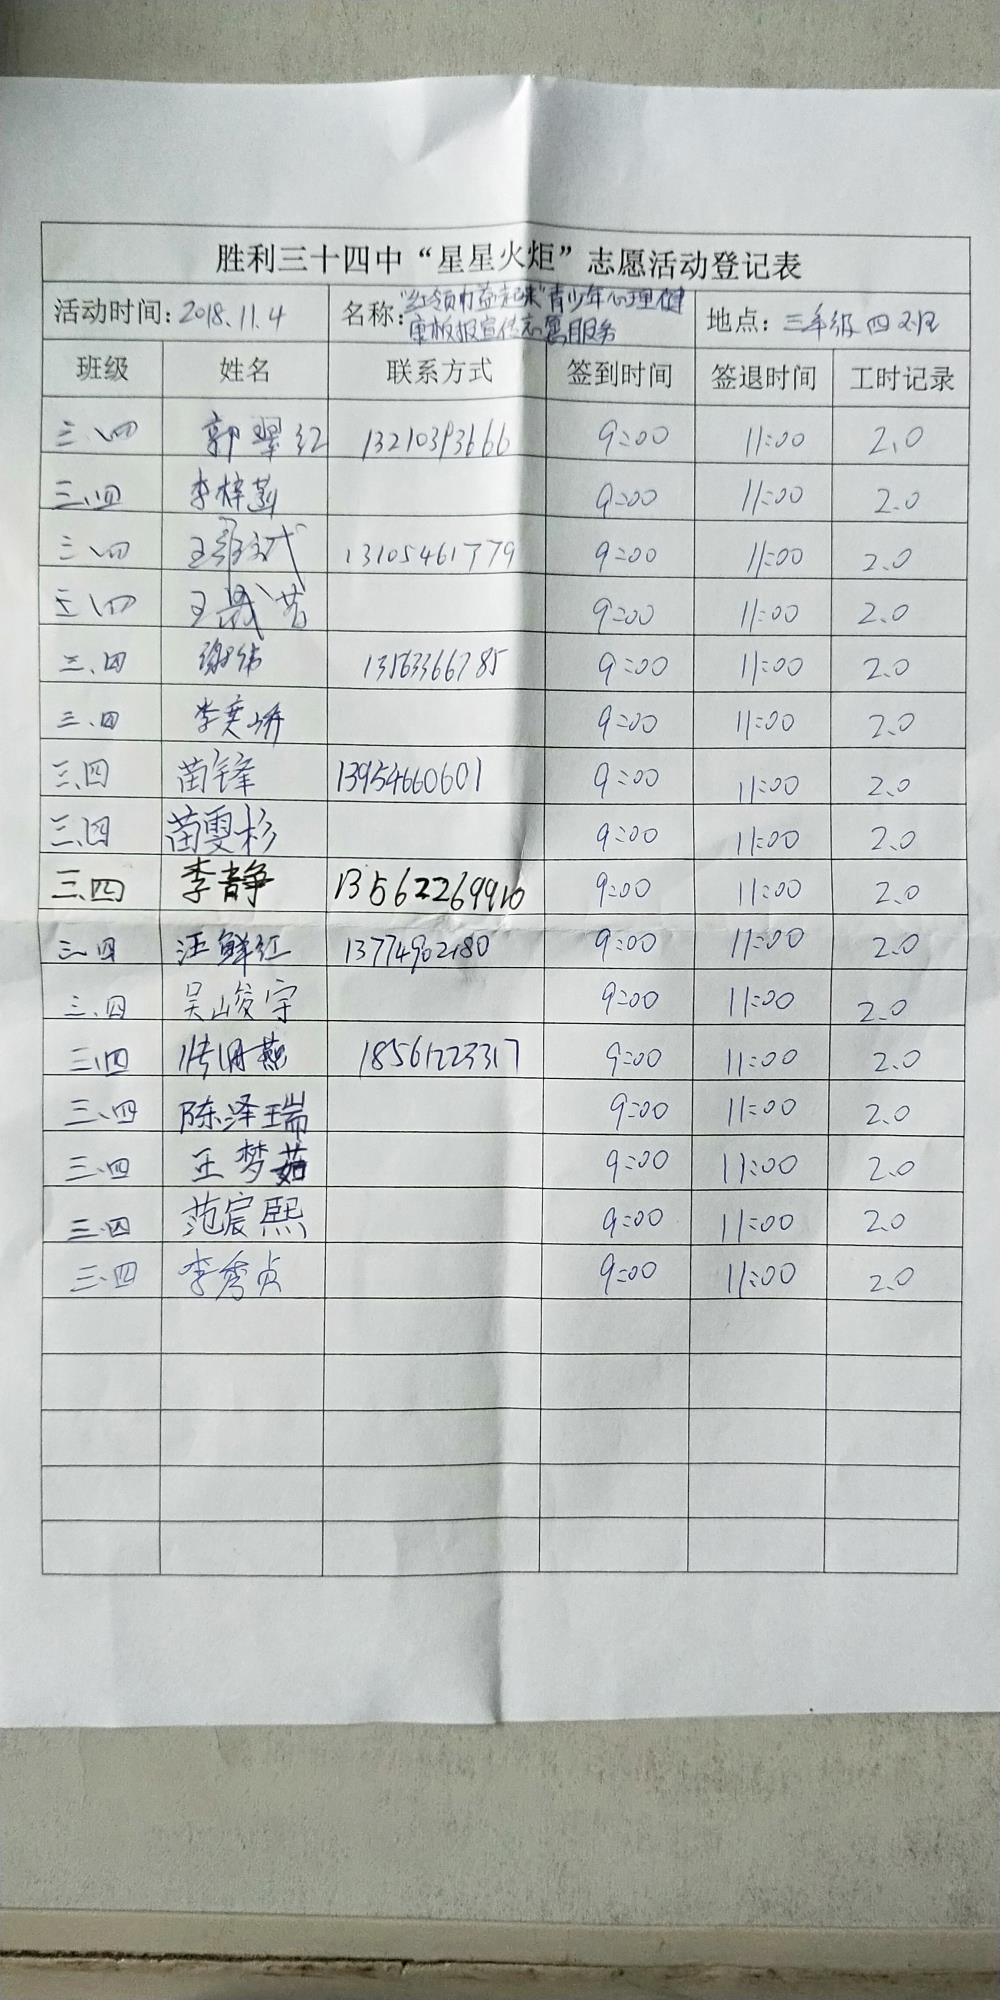 胜利三十四中“星星火炬”志愿活动登记表
活动时间：2018.11.4 名称：“红领巾益起来”青少年心理健 地点：三年级四班
板报宣传志愿服务
班级 姓名 联系方式 签到时间 签退时间 工时记录
三、四 郭翠红 13210393666 9:00 11:00 2.0
三、四 李梓 9:00 11:00 2.0
三、四 王 13105461779 9:00 11:00 2.0
三、四 王 9:00 11:00 2.0
三、四 谢伟 13563366785 9:00 11:00 2.0
三、四 李奕娇 9:00 11:00 2.0
三、四 苗锋 13954660601 9:00 11:00 2.0
三、四 苗雯杉 9:00 11:00 2.0
三、四 李静 13562269910 9:00 11:00 2.0
三、四 汪鲜红 13774902180 9:00 11:00 2.0
三、四 吴峻宇 9:00 11:00 2.0
三、四 18561223317 9:00 11:00 2.0
三、四 陈泽瑞 9:00 11:00 2.0
三、四 王梦茹 9:00 11:00 2.0
三、四 范宸熙 9:00 11:00 2.0
三、四 李秀贞 9:00 11:00 2.0